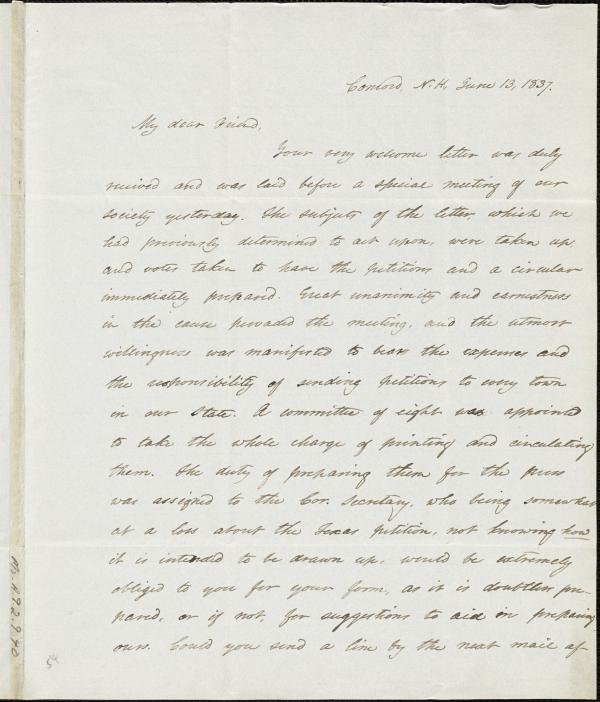 Concord, N.H, June 13, 1837.
My dear Friend,
Your very welcome letter was duly
received and was laid before a special meeting of our
society yesterday. The subjects of the letter, which we
had previously determined to act upon, were taken up,
and votes taken to have the petitions and a circular
immediately prepared. Great unanimity and earnestness
in the cause pervaded the meeting, and the utmost
willingness was manifested to bear the expenses and
the responsibility of sending petitions to every town
in our State. A committee of eight was appointed
to take the whole charge of printing and circulating
them. The duty of preparing them for the press
was assigned to the Cor. Secretary, who being somewhat
at a loss about the Texas petition, not knowing how
it is intended to be drawn up, would be extremely
obliged to you for your form, as it is doubtless pre-
pared, or if not, for suggestions to aid in preparing
ours. Could you send a line by the next mail af-